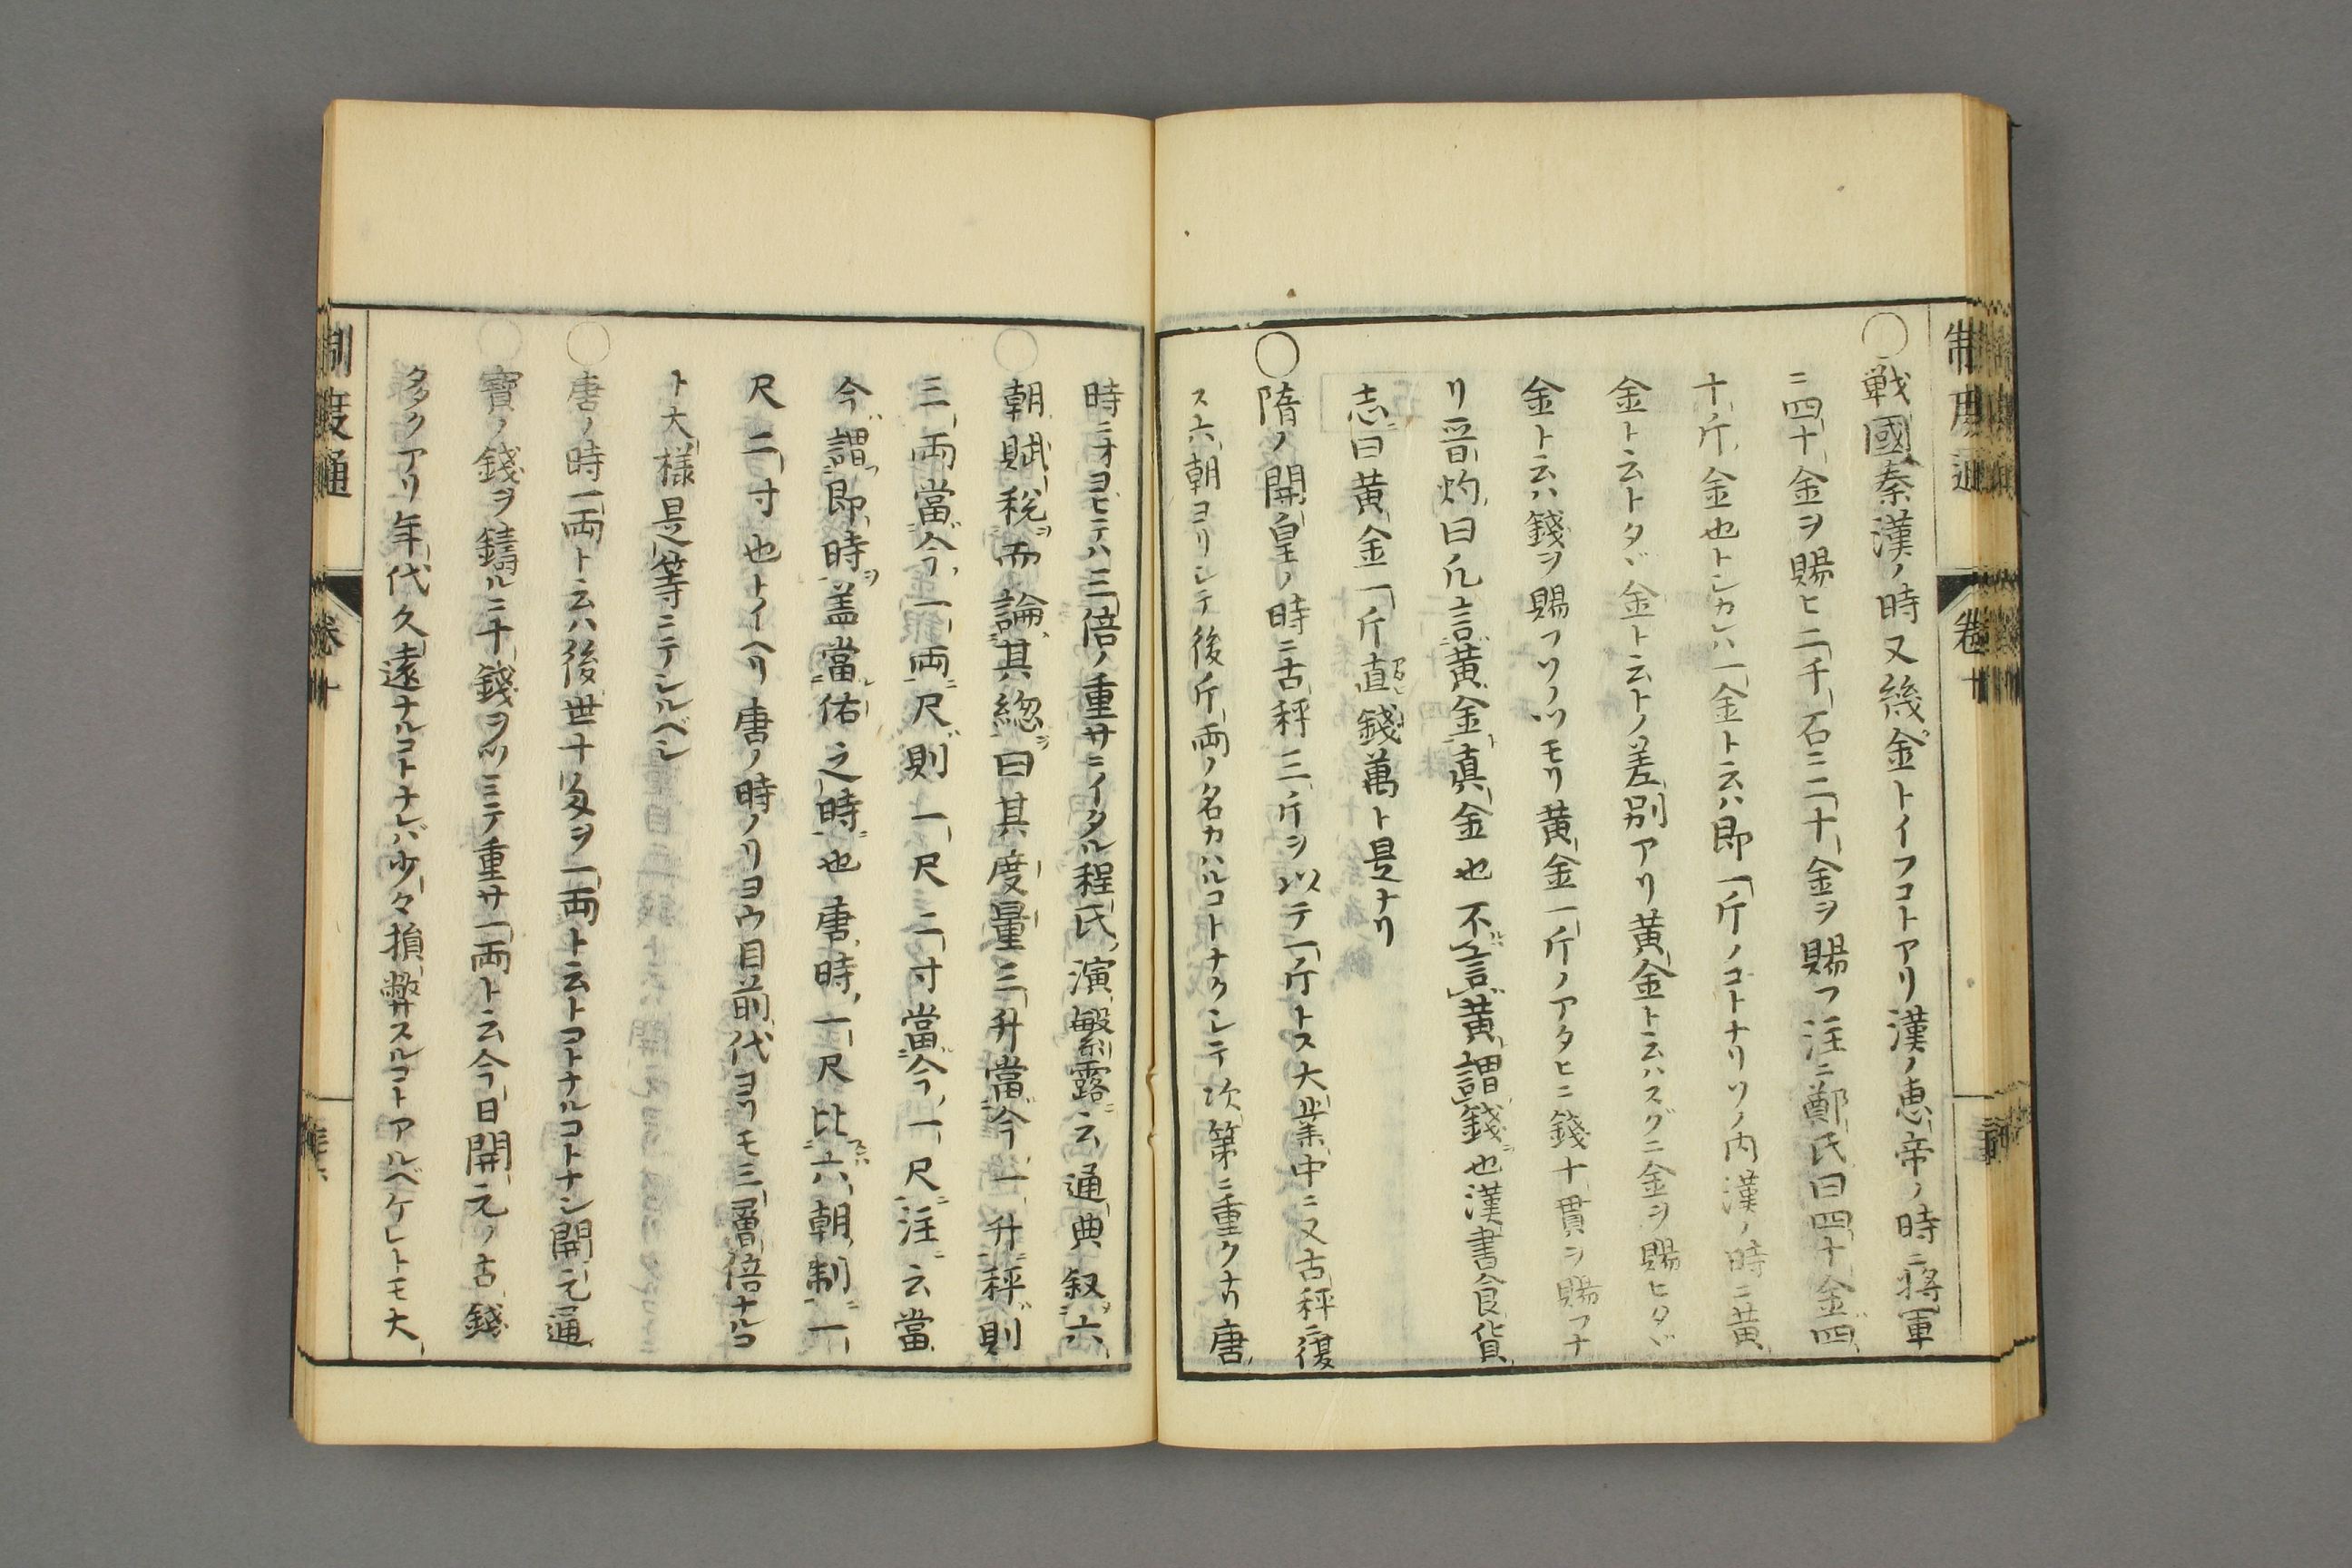 ○戦國秦漢ノ時又幾金トイフコトアリ漢ノ恵帝ノ時ニ将軍
ニ四十金ヲ賜ヒ二千石ニ二十金ヲ賜フ注ニ鄭氏曰四十金四
十斤金也トシカレハ一金ト云ハ即一斤ノコトナリソノ内漢ノ時ニ黄
金ト云トタヾ金ト云トノ差別アリ黄金ト云ハスグニ金ヲ賜ヒタヾ
金ト云ハ錢ヲ賜フソノツモリ黄金一斤ノアタヒニ錢十貫ヲ賜フナ
リ晉灼曰凡言黄金真金也不言黄謂錢也漢書食貨
志曰黄金一斤直錢萬ト是ナリ
○隋ノ開皇ノ時ニ古秤三斤ヲ以テ一斤トス大業中ニ又古秤ニ復
ス六朝ヨリシテ後斤両ノ名カハルコトナクシテ次第ニ重クナリ唐
時ニオヨビテハ三倍ノ重サニイタル程氏演繁露云通典叙六
○朝賦税而論其総曰其度量三升當今一升秤則
三両當今一両尺則一尺二寸當今一尺注云當
今謂即時蓋當佑之時也唐時一尺比六朝制一
尺二寸也トイヘリ唐ノ時ノリヨウ目前代ヨリモ三層倍ナルコ
ト大様是等ニテシルベシ
○唐ノ時一両ト云ハ後世十匁ヲ一両ト云トコトナルコトナシ開元通
○寶ノ錢ヲ鑄ルニ十錢ヲツミテ重サ一両ト云今日開元ノ古錢
多クアリ年代久遠ナルコトナレバ少々損弊スルコトアルベケレトモ大
制度通
卷十
制度通
卷十